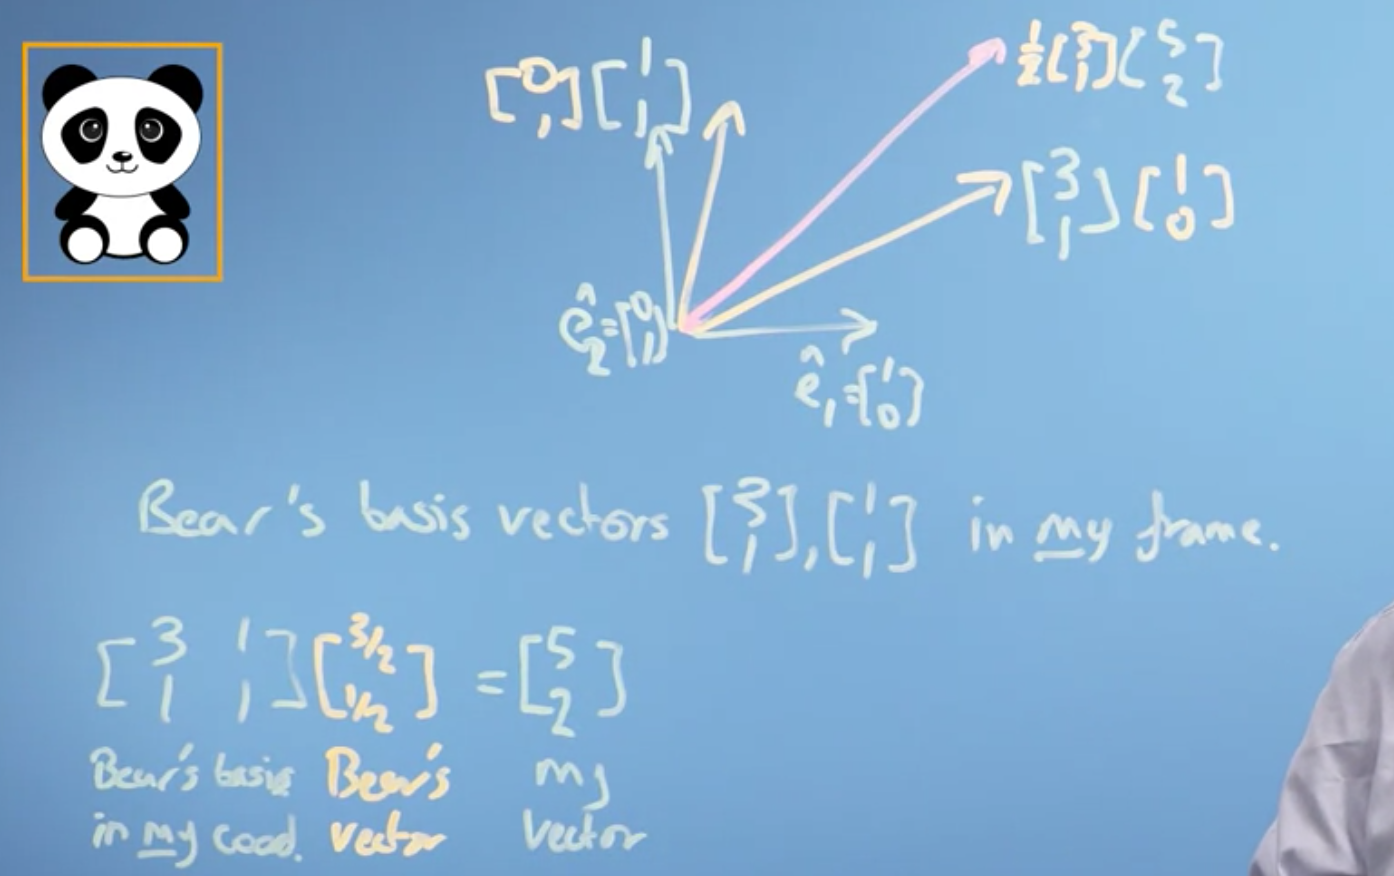 [0 1] [1 1]
1/2 [3 1] [5 2]
[3 1] [1 0]
ê2 = [0 1]
ê1 = [1 0]
Bear's basis vectors [3 1], [1 1] in my frame.
[3 1 1 1] [3/2 1/2] = [5 2]
Bear's basis Bear's my
in my cood. vector vector